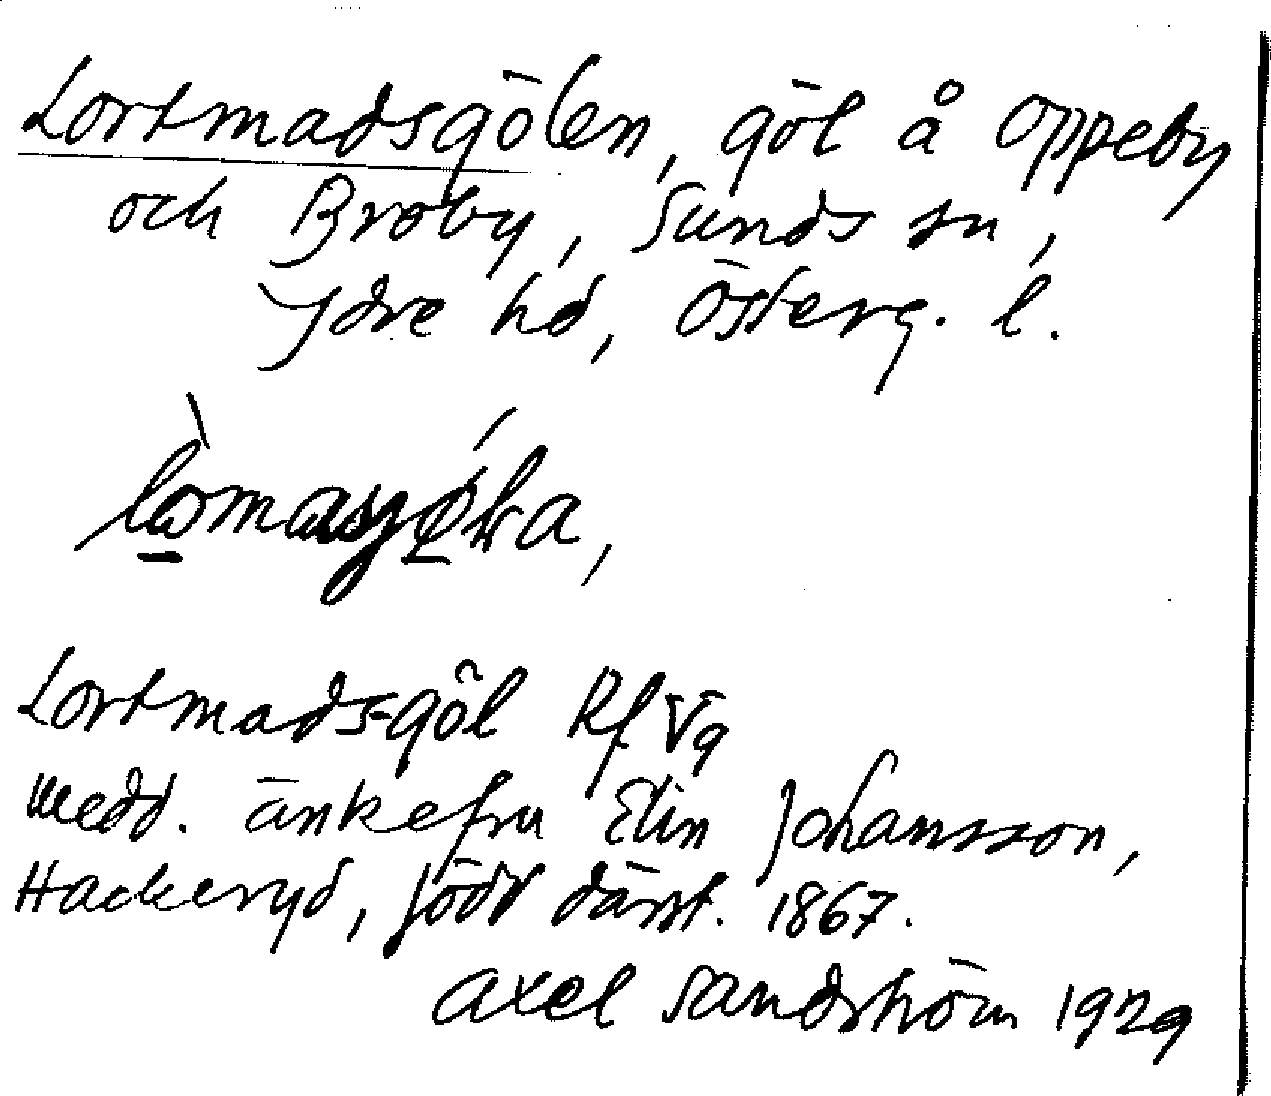 Lortmadsgölen, göl å Oppeby
och Broby, Sunds sn,
Ydre hd, Österg. l.
Lortmads-göl Rf Vg
Medd. änkefru Elin Johansson,
Hackeryd, född därst. 1867.
Axel Sandström 1929